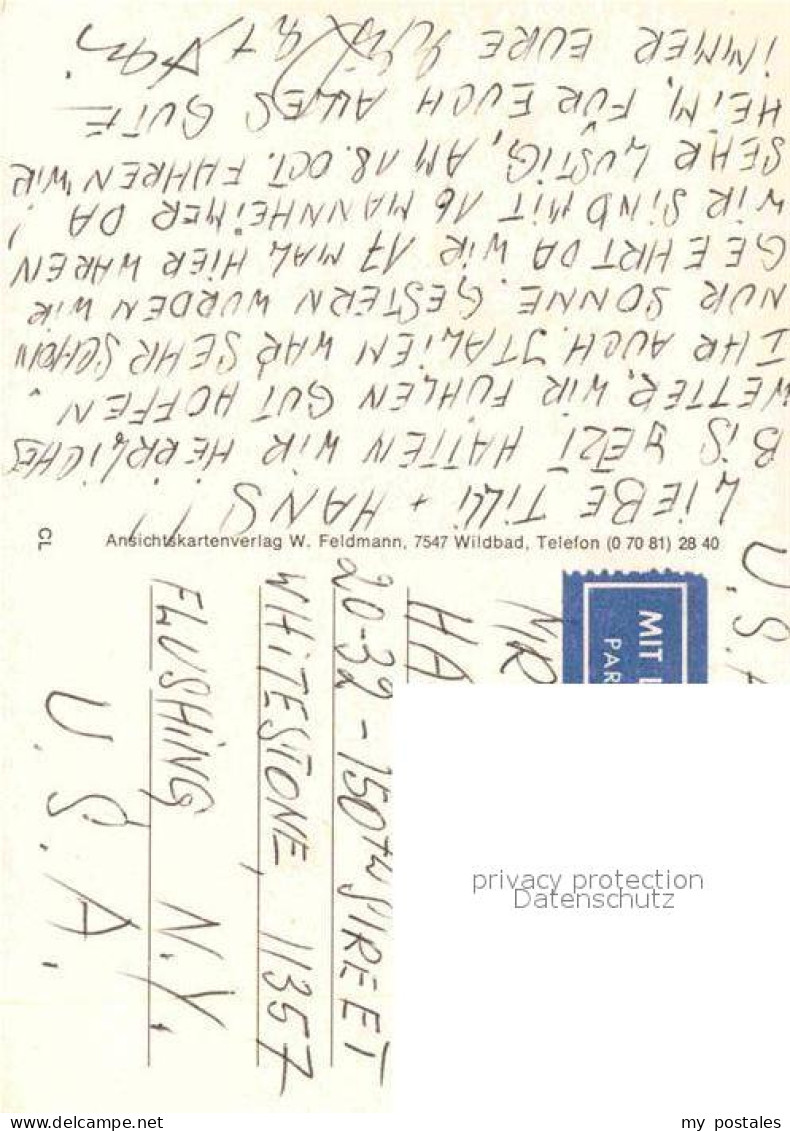 LIEBE TILLI + HANS!
BIS YEZT HATTEN WIR HERRLICHES
WETTER, WIR FÜHLEN GUT HOFFEN
IHR AUCH. ITALIEN WAR SEHR SCHÖN
NUR SONNE. GESTERN WURDEN WIR
GEEHRT DA WIR 17 MAL HIER WAREN
WIR SIND MIT 16 MANNHEIMER DA!
SEHR LUSTIG, AM 18. OCT. FAHREN WIR
HEIM, FÜR EUCH ALLES GUTE
IMMER EURE
Ansichtskartenverlag W. Feldmann, 7547 Wildbad, Telefon (0 70 81) 28 40
CL
MIT L
PAR
U.S.A
MR
HA
20-32 - 150TH STREET
WHITESTONE, 11357
FLUSHING N.Y.
U.S.A.
privacy protection
Datenschutz
my postales